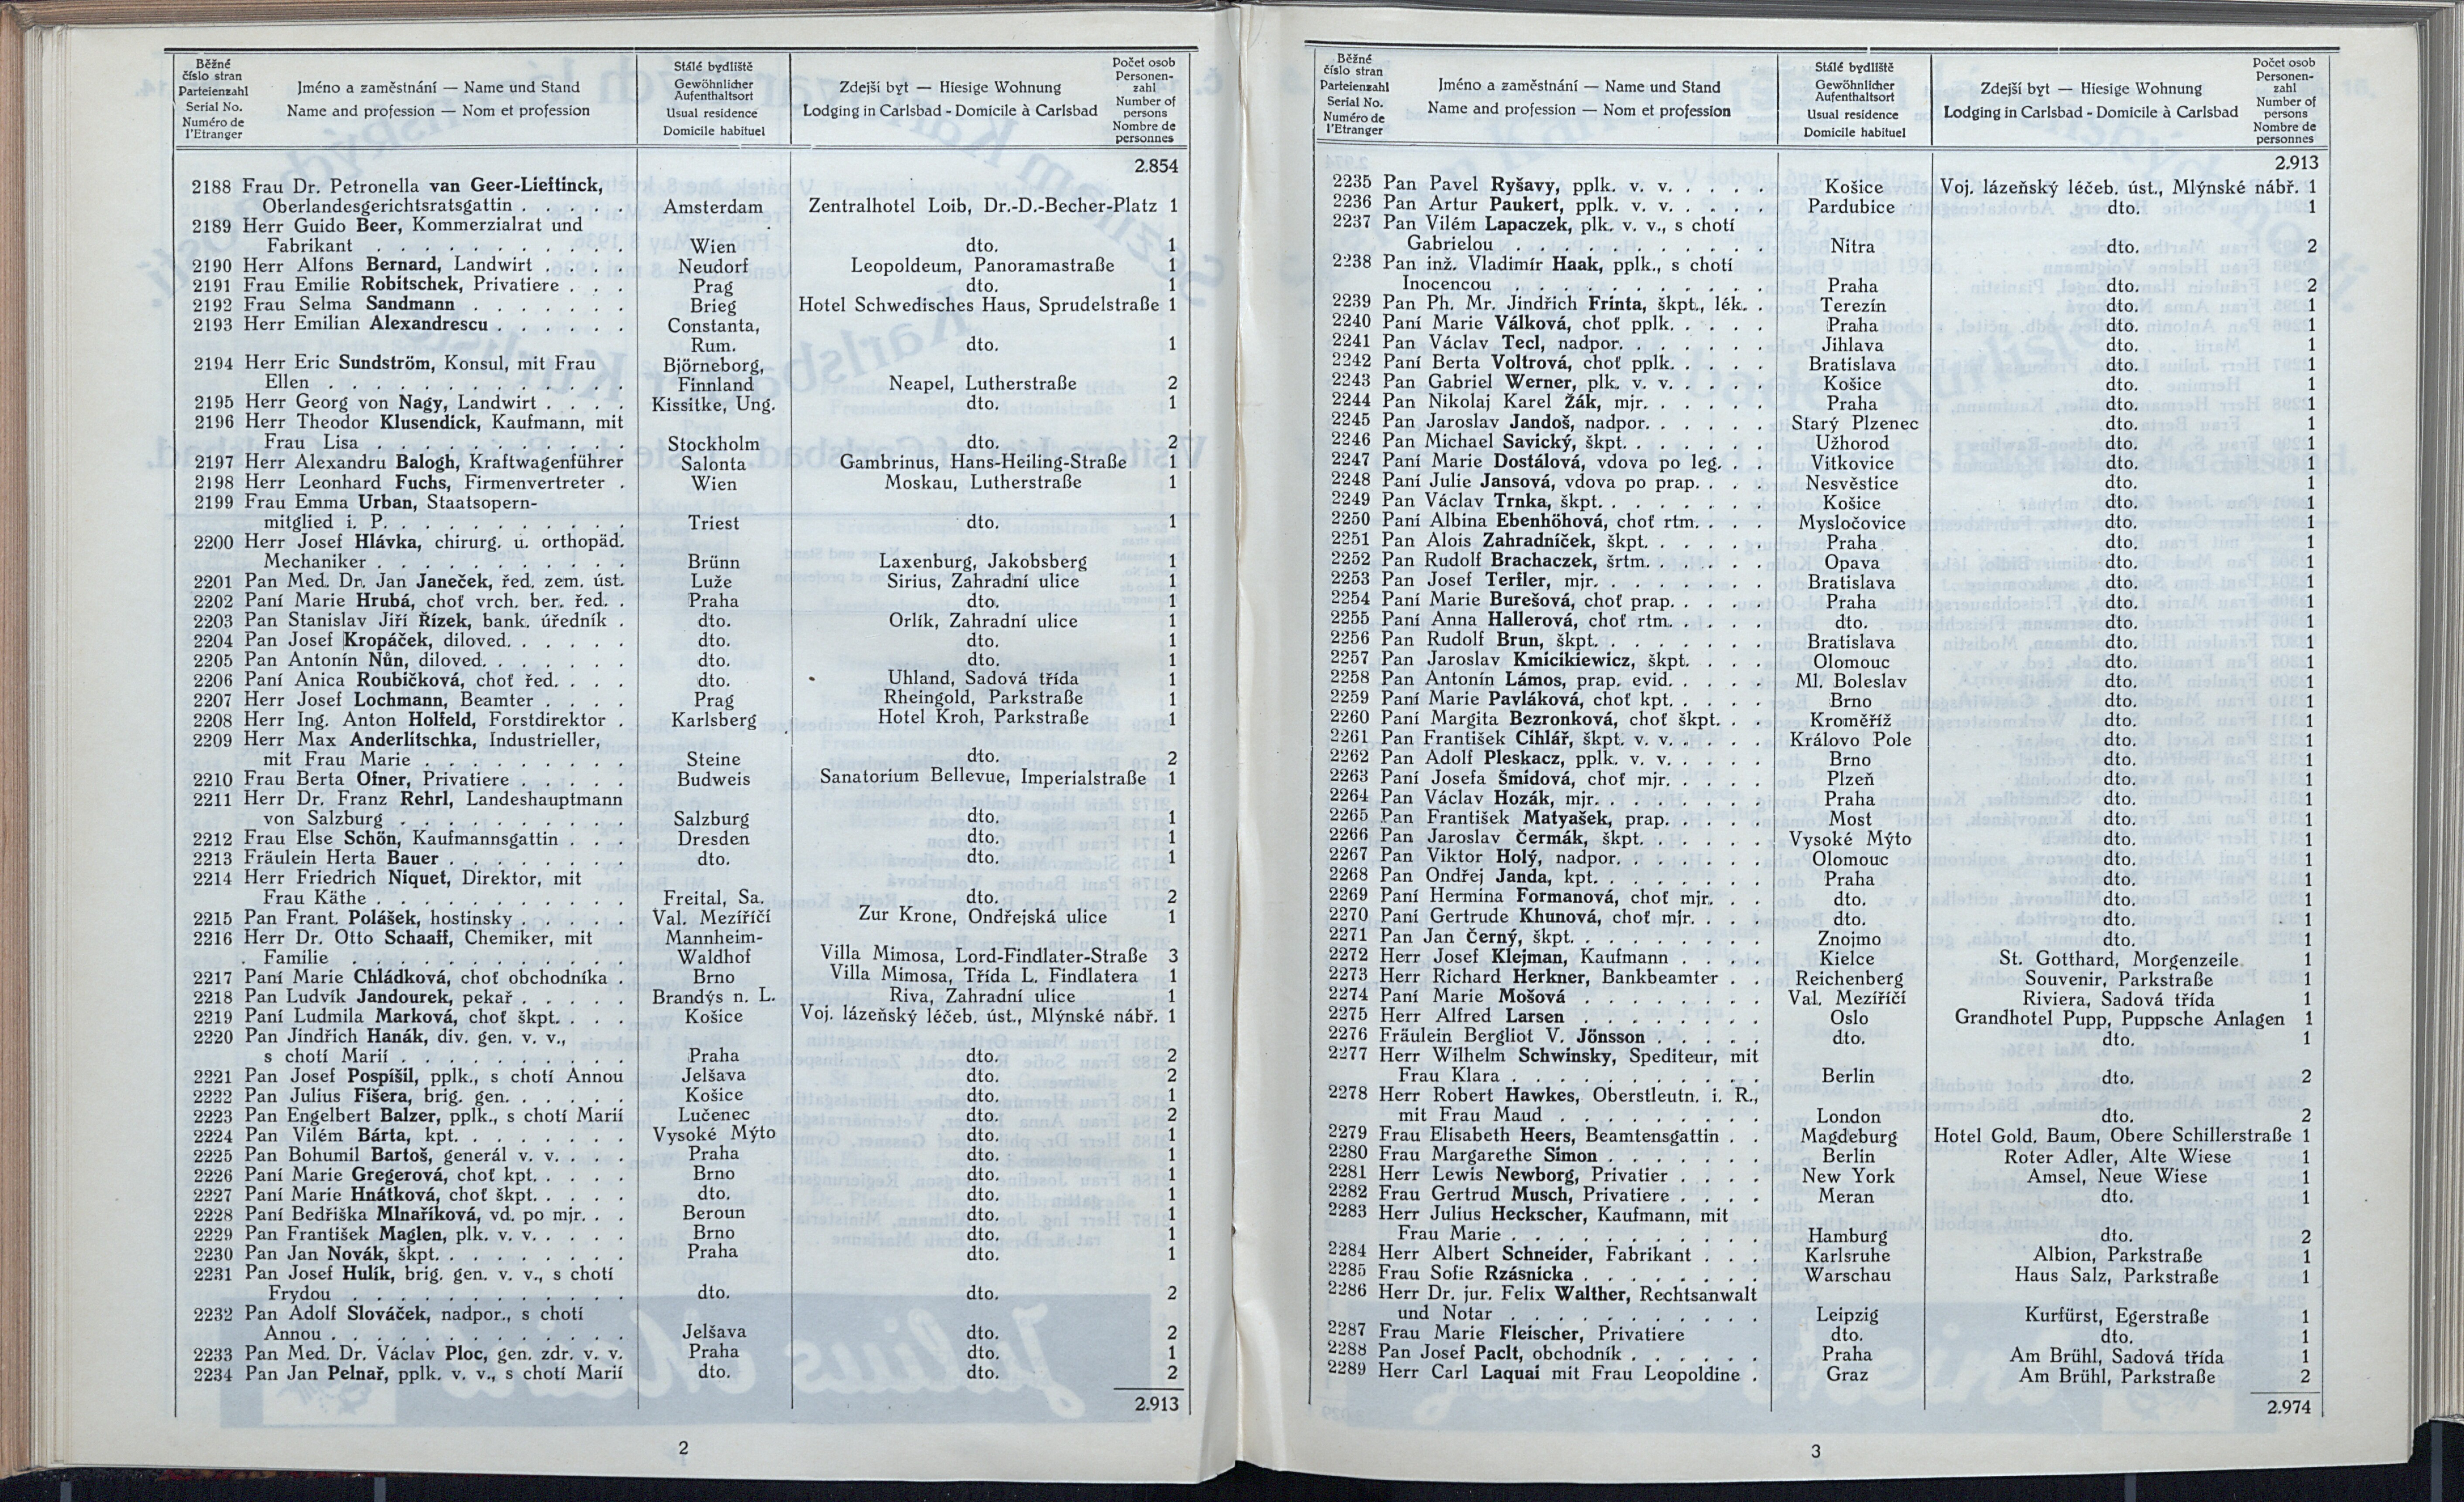 Běžné
číslo stran
Parteienzahl
Serial No.
Numéro de
l'Etranger
Jméno a zaměstnání — Name und Stand
Name and profession — Nom et profession
Stálé bydliště
Gewöhnlicher
Aufenthaltsort
Usual residence
Domicile habituel
Zdejší byt — Hiesige Wohnung
Lodging in Carlsbad - Domicile à Carlsbad
Počet osob
Personen-
zahl
Number of
persons
Nombre de
personnes
2.854
2188 Frau Dr. Petronella van Geer-Lieftinck,
Oberlandesgerichtsratsgattin . . . . . Amsterdam Zentralhotel Loib, Dr.-D.-Becher-Platz 1
2189 Herr Guido Beer, Kommerzialrat und
Fabrikant . . . . . . . . Wien dto. 1
2190 Herr Alfons Bernard, Landwirt . . . . Neudorf Leopoldeum, Panoramastraße 1
2191 Frau Emilie Robitschek, Privatiere . . . Prag dto. 1
2192 Frau Selma Sandmann . . . . . . . Brieg Hotel Schwedisches Haus, Sprudelstraße 1
2193 Herr Emilian Alexandrescu . . . . . . Constanta,
Rum. dto. 1
2194 Herr Eric Sundström, Konsul, mit Frau Björneborg,
Ellen . . . . . . . . . . Finnland Neapel, Lutherstraße 2
2195 Herr Georg von Nagy, Landwirt . . . . Kissitke, Ung. dto. 1
2196 Herr Theodor Klusendick, Kaufmann, mit
Frau Lisa . . . . . . . . . Stockholm dto. 2
2197 Herr Alexandru Balogh, Kraftwagenführer Salonta Gambrinus, Hans-Heiling-Straße 1
2198 Herr Leonhard Fuchs, Firmenvertreter . Wien Moskau, Lutherstraße 1
2199 Frau Emma Urban, Staatsopern-
mitglied i. P. . . . . . . . . Triest dto. 1
2200 Herr Josef Hlávka, chirurg. u. orthopäd.
Mechaniker . . . . . . . . . Brünn Laxenburg, Jakobsberg 1
2201 Pan Med. Dr. Jan Janeček, řed. zem. úst. Luže Sirius, Zahradní ulice 1
2202 Paní Marie Hrubá, choť vrch. ber. řed. . Praha dto. 1
2203 Pan Stanislav Jiří Řízek, bank. úředník . dto. Orlík, Zahradní ulice 1
2204 Pan Josef Kropáček, diloved. . . . . . dto. dto. 1
2205 Pan Antonín Nůn, diloved. . . . . . . dto. dto. 1
2206 Paní Anica Roubíčková, choť řed. . . . dto. Uhland, Sadová třída 1
2207 Herr Josef Lochmann, Beamter . . . . Prag Rheingold, Parkstraße 1
2208 Herr Ing. Anton Holfeld, Forstdirektor . Karlsberg Hotel Kroh, Parkstraße 1
2209 Herr Max Anderlitschka, Industrieller,
mit Frau Marie . . . . . . . . Steine dto. 2
2210 Frau Berta Ofner, Privatiere . . . . Budweis Sanatorium Bellevue, Imperialstraße 1
2211 Herr Dr. Franz Rehrl, Landeshauptmann
von Salzburg . . . . . . . . Salzburg dto. 1
2212 Frau Else Schön, Kaufmannsgattin . . . Dresden dto. 1
2213 Fräulein Herta Bauer . . . . . . . dto. dto. 1
2214 Herr Friedrich Niquet, Direktor, mit
Frau Käthe . . . . . . . . . Freital, Sa. dto. 2
2215 Pan Frant. Polášek, hostinsky . . . . Val. Mezíříčí Zur Krone, Ondřejská ulice 1
2216 Herr Dr. Otto Schaaff, Chemiker, mit Mannheim-
Familie . . . . . . . . . . Waldhof Villa Mimosa, Lord-Findlater-Straße 3
2217 Paní Marie Chládková, choť obchodníka . Brno Villa Mimosa, Třída L. Findlatera 1
2218 Pan Ludvík Jandourek, pekař . . . . . Brandýs n. L. Riva, Zahradní ulice 1
2219 Paní Ludmila Marková, choť škpt. . . . Košice Voj. lázeňský léčeb. úst., Mlýnské nábř. 1
2220 Pan Jindřich Hanák, div. gen. v. v.,
s chotí Marií . . . . . . . . Praha dto. 2
2221 Pan Josef Pospíšil, pplk., s chotí Annou Jelšava dto. 2
2222 Pan Julius Fišera, brig. gen. . . . . . Košice dto. 1
2223 Pan Engelbert Balzer, pplk., s chotí Marií Lučenec dto. 2
2224 Pan Vilém Bárta, kpt. . . . . . . . Vysoké Mýto dto. 1
2225 Pan Bohumil Bartoš, generál v. v. . . . Praha dto. 1
2226 Paní Marie Gregerová, choť kpt. . . . . Brno dto. 1
2227 Paní Marie Hnátková, choť škpt. . . . . dto. dto. 1
2228 Paní Bedřiška Mlnaříková, vd. po mjr. . . Beroun dto. 1
2229 Pan František Maglen, plk. v. v. . . . . Brno dto. 1
2230 Pan Jan Novák, škpt. . . . . . . . . Praha dto. 1
2231 Pan Josef Hulík, brig. gen. v. v., s chotí
Frydou . . . . . . . . . . dto. dto. 2
2232 Pan Adolf Slováček, nadpor., s chotí
Annou . . . . . . . . . . Jelšava dto. 2
2233 Pan Med. Dr. Václav Ploc, gen. zdr. v. v. Praha dto. 1
2234 Pan Jan Pelnař, pplk. v. v., s chotí Marií dto. dto. 2
2.913
2
Běžné
číslo stran
Parteienzahl
Serial No.
Numéro de
l'Etranger
Jméno a zaměstnání — Name und Stand
Name and profession — Nom et profession
Stálé bydliště
Gewöhnlicher
Aufenthaltsort
Usual residence
Domicile habituel
Zdejší byt — Hiesige Wohnung
Lodging in Carlsbad - Domicile à Carlsbad
Počet osob
Personen-
zahl
Number of
persons
Nombre de
personnes
2.913
2235 Pan Pavel Ryšavy, pplk. v. v. . . . . Košice Voj. lázeňský léčeb. úst., Mlýnské nábř. 1
2236 Pan Artur Paukert, pplk. v. v. . . . . Pardubice dto. 1
2237 Pan Vilém Lapaczek, plk. v. v., s chotí
Gabrielou . . . . . . . . . Nitra dto. 2
2238 Pan inž. Vladimír Haak, pplk., s chotí
Inocencou . . . . . . . . . Praha dto. 2
2239 Pan Ph. Mr. Jindřich Frinta, škpt., lék. . Terezín dto. 1
2240 Paní Marie Válková, choť pplk. . . . . Praha dto. 1
2241 Pan Václav Tecl, nadpor. . . . . . . Jihlava dto. 1
2242 Paní Berta Voltrová, choť pplk. . . . . Bratislava dto. 1
2243 Pan Gabriel Werner, plk. v. v. . . . . Košice dto. 1
2244 Pan Nikolaj Karel Žák, mjr. . . . . . Praha dto. 1
2245 Pan Jaroslav Jandoš, nadpor. . . . . . Starý Plzenec dto. 1
2246 Pan Michael Savický, škpt. . . . . . . Užhorod dto. 1
2247 Paní Marie Dostálová, vdova po leg. . . Vitkovice dto. 1
2248 Paní Julie Jansová, vdova po prap. . . . Nesvěstice dto. 1
2249 Pan Václav Trnka, škpt. . . . . . . . Košice dto. 1
2250 Paní Albina Ebenhöhová, choť rtm. . . . Mysločovice dto. 1
2251 Pan Alois Zahradníček, škpt. . . . . . Praha dto. 1
2252 Pan Rudolf Brachaczek, šrtm. . . . . . Opava dto. 1
2253 Pan Josef Terfler, mjr. . . . . . . . Bratislava dto. 1
2254 Paní Marie Burešová, choť prap. . . . . Praha dto. 1
2255 Paní Anna Hallerová, choť rtm. . . . . dto. dto. 1
2256 Pan Rudolf Brun, škpt. . . . . . . . Bratislava dto. 1
2257 Pan Jaroslav Kmicikiewicz, škpt. . . . Olomouc dto. 1
2258 Pan Antonín Lámos, prap. evid. . . . . Ml. Boleslav dto. 1
2259 Paní Marie Pavláková, choť kpt. . . . . Brno dto. 1
2260 Paní Margita Bezronková, choť škpt. . . Kroměříž dto. 1
2261 Pan František Cihlář, škpt. v. v. . . . . Královo Pole dto. 1
2262 Pan Adolf Pleskacz, pplk. v. v. . . . . Brno dto. 1
2263 Paní Josefa Šmídová, choť mjr. . . . . Plzeň dto. 1
2264 Pan Václav Hozák, mjr. . . . . . . . Praha dto. 1
2265 Pan František Matyašek, prap. . . . . Most dto. 1
2266 Pan Jaroslav Čermák, škpt. . . . . . Vysoké Mýto dto. 1
2267 Pan Viktor Holý, nadpor. . . . . . . Olomouc dto. 1
2268 Pan Ondřej Janda, kpt. . . . . . . . Praha dto. 1
2269 Paní Hermina Formanová, choť mjr. . . dto. dto. 1
2270 Paní Gertrude Khunová, choť mjr. . . . dto. dto. 1
2271 Pan Jan Černý, škpt. . . . . . . . . Znojmo dto. 1
2272 Herr Josef Klejman, Kaufmann . . . . Kielce St. Gotthard, Morgenzeile 1
2273 Herr Richard Herkner, Bankbeamter . . Reichenberg Souvenir, Parkstraße 1
2274 Paní Marie Mošová . . . . . . . . Val. Mezíříčí Riviera, Sadová třída 1
2275 Herr Alfred Larsen . . . . . . . . Oslo Grandhotel Pupp, Puppsche Anlagen 1
2276 Fräulein Bergliot V. Jönsson . . . . . dto. dto. 1
2277 Herr Wilhelm Schwinsky, Spediteur, mit
Frau Klara . . . . . . . . . Berlin dto. 2
2278 Herr Robert Hawkes, Oberstleutn. i. R.,
mit Frau Maud . . . . . . . . London dto. 2
2279 Frau Elisabeth Heers, Beamtensgattin . . Magdeburg Hotel Gold. Baum, Obere Schillerstraße 1
2280 Frau Margarethe Simon . . . . . . Berlin Roter Adler, Alte Wiese 1
2281 Herr Lewis Newborg, Privatier . . . . New York Amsel, Neue Wiese 1
2282 Frau Gertrud Musch, Privatiere . . . . Meran dto. 1
2283 Herr Julius Heckscher, Kaufmann, mit
Frau Marie . . . . . . . . . Hamburg dto. 2
2284 Herr Albert Schneider, Fabrikant . . . Karlsruhe Albion, Parkstraße 1
2285 Frau Sofie Rzásnicka . . . . . . . Warschau Haus Salz, Parkstraße 1
2286 Herr Dr. jur. Felix Walther, Rechtsanwalt
und Notar . . . . . . . . . Leipzig Kurfürst, Egerstraße 1
2287 Frau Marie Fleischer, Privatiere dto. dto. 1
2288 Pan Josef Paclt, obchodník . . . . . . Praha Am Brühl, Sadová třída 1
2289 Herr Carl Laquai mit Frau Leopoldine . Graz Am Brühl, Parkstraße 2
2.974
3